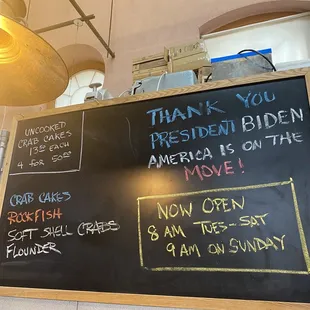 UNCOOKED
CRAB CAKES
13.50 EACH
4 FOR 50.00
CRAB CAKES
ROCKFISH
SOFT SHELL CRABS
FLOUNDER
THANK YOU
PRESIDENT BIDEN
AMERICA IS ON THE
MOVE!
NOW OPEN
8 AM TUES-SAT
9 AM ON SUNDAY